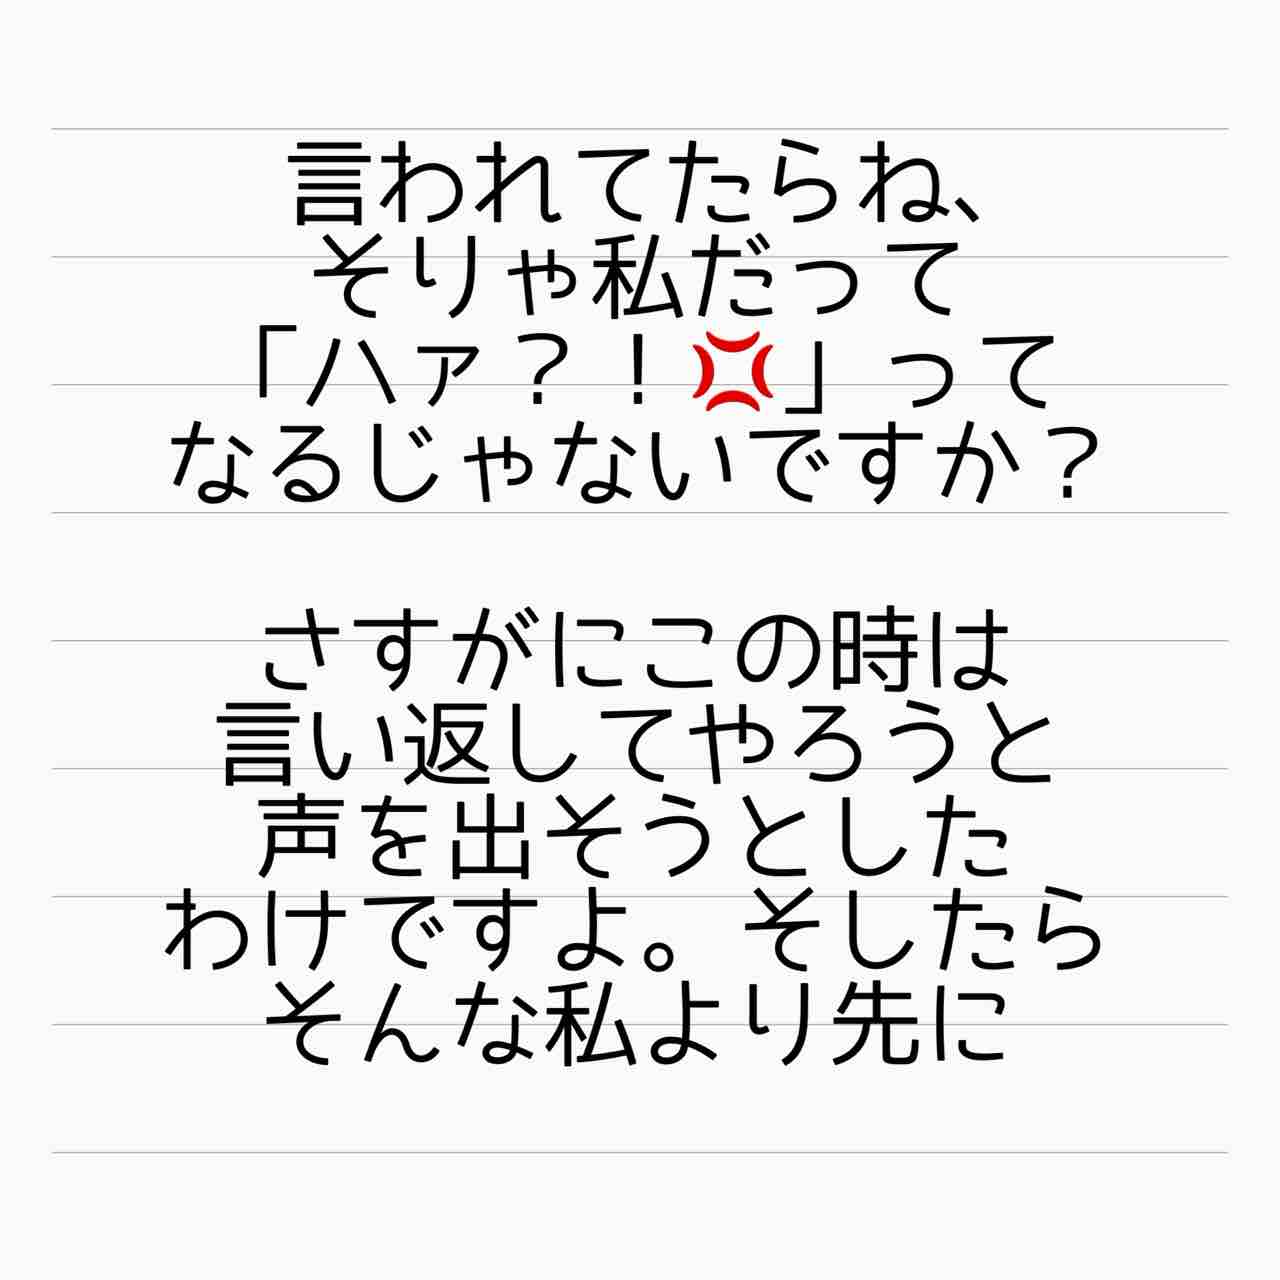 言われてたらね、
そりゃ私だって
「ハァ？！💢」って
なるじゃないですか？
さすがにこの時は
言い返してやろうと
声を出そうとした
わけですよ。そしたら
そんな私より先に